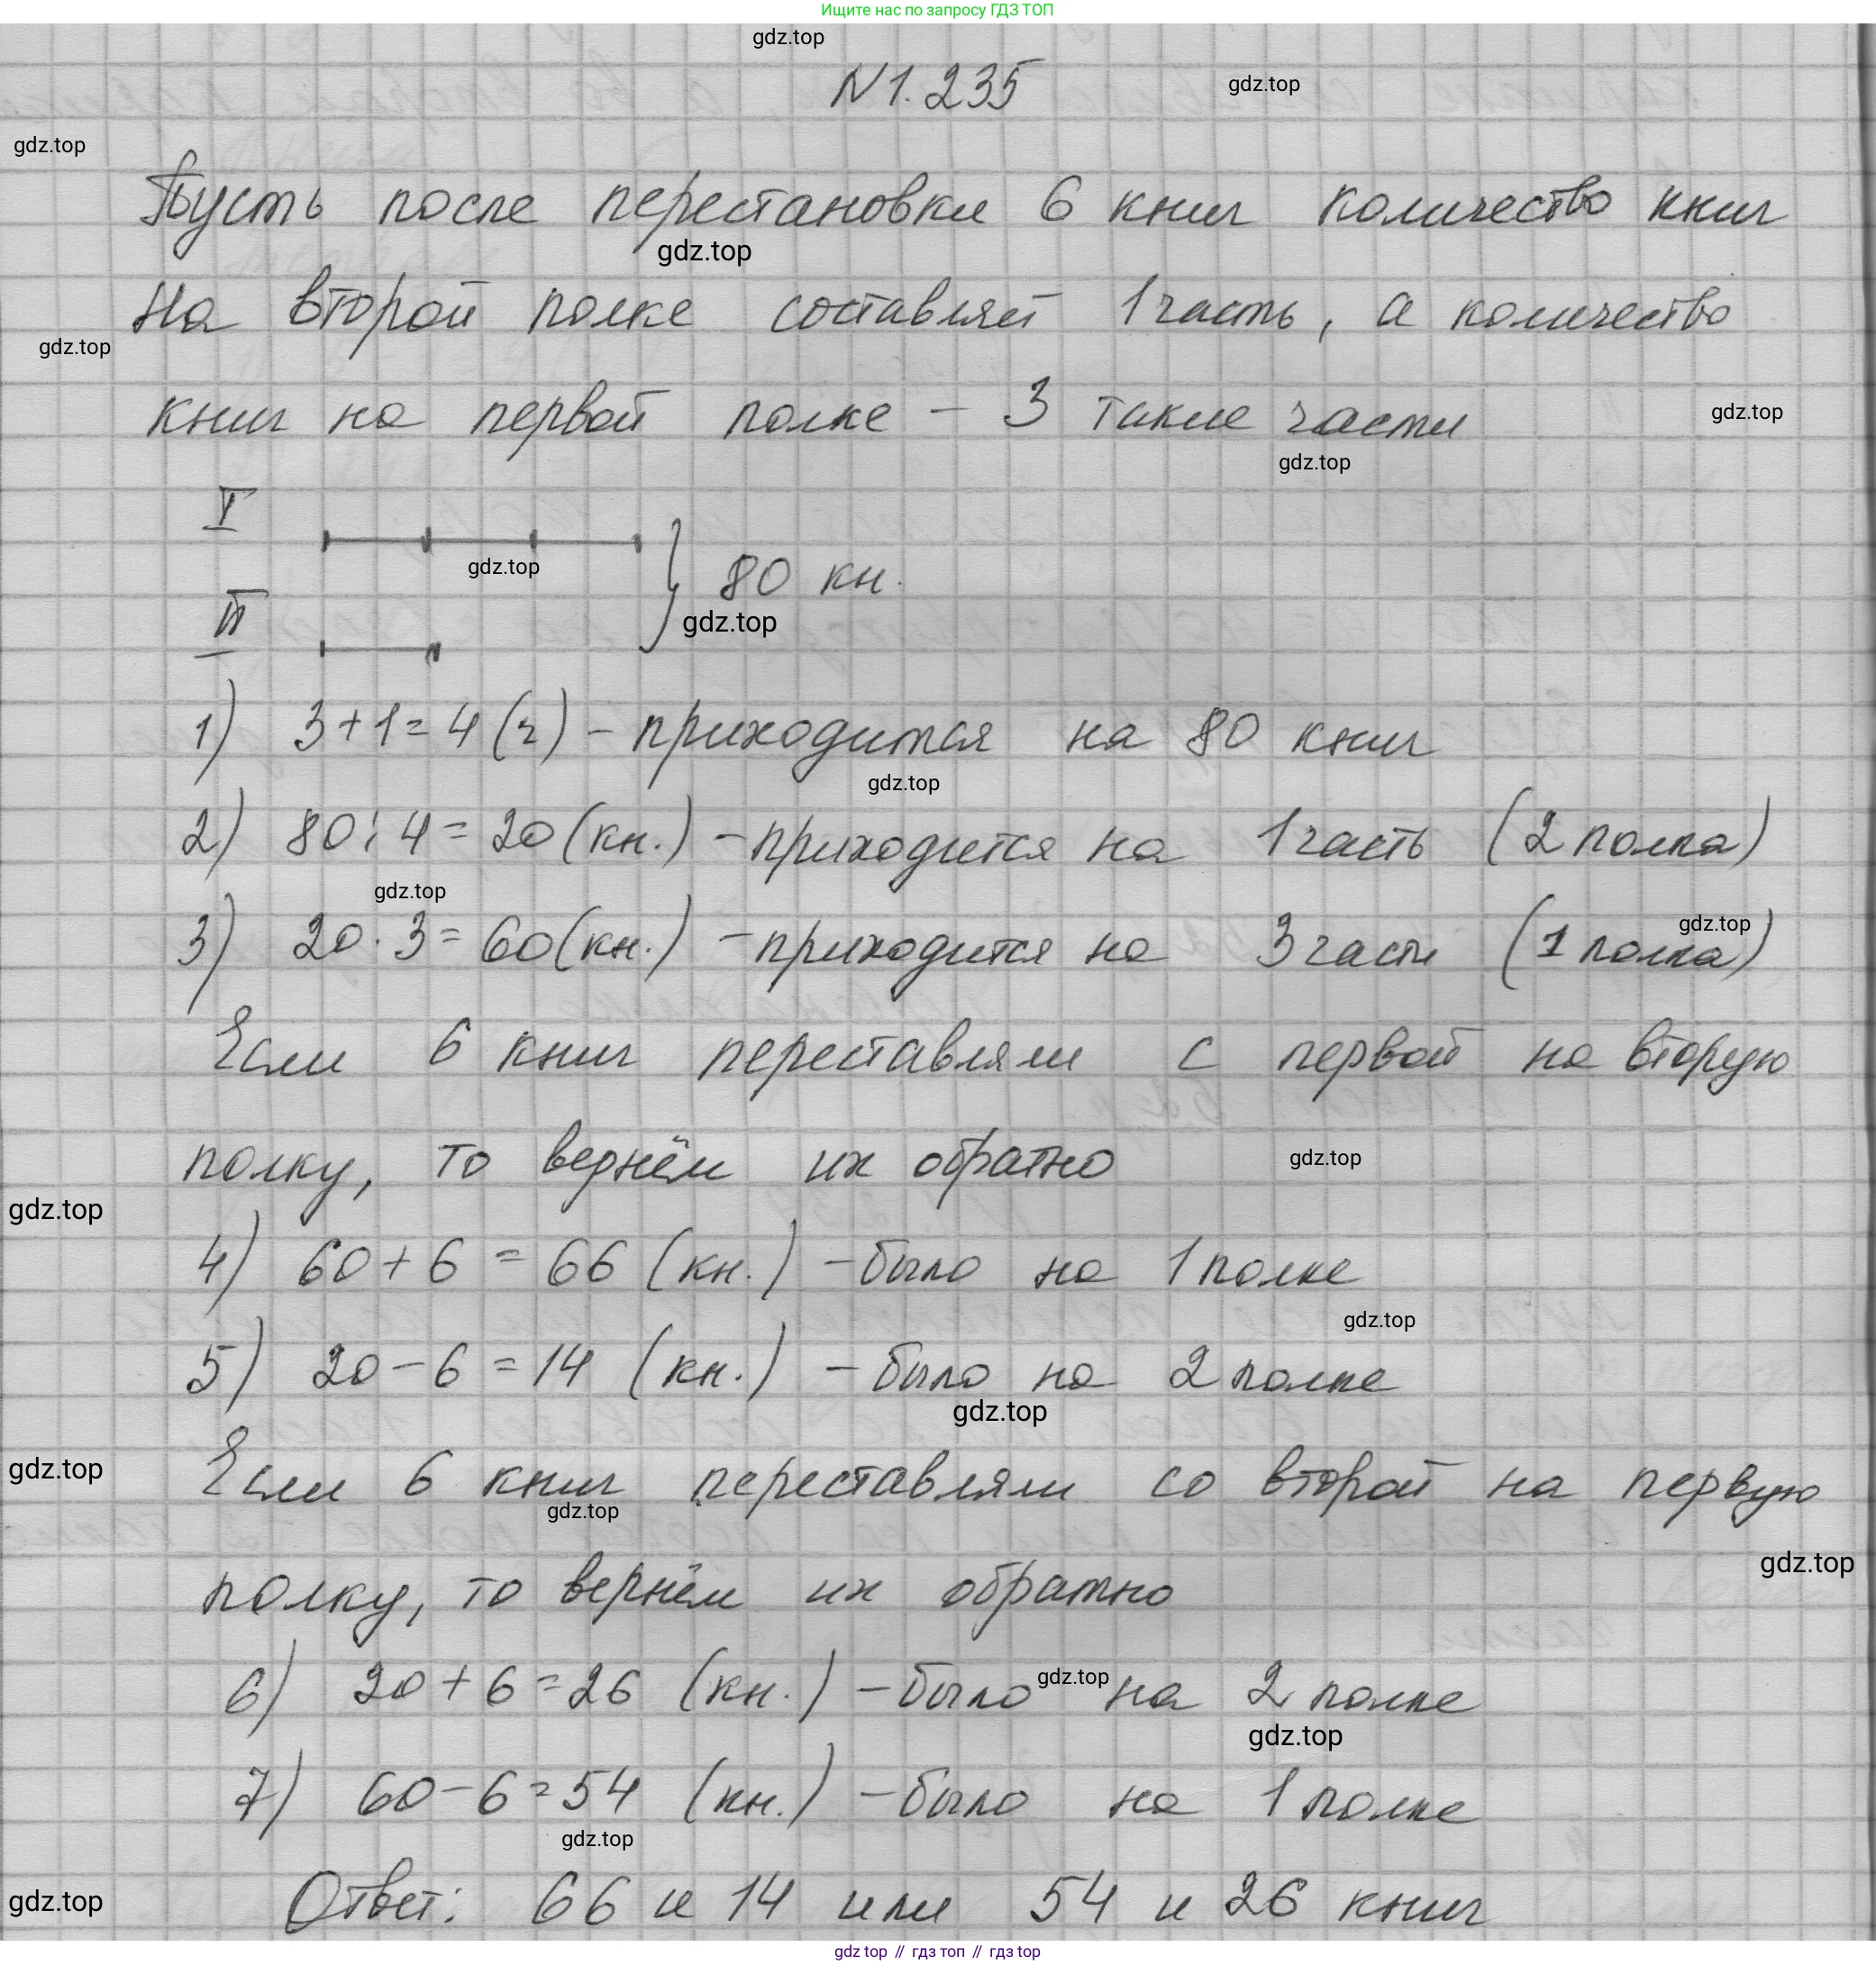 Ищите нас по запросу ГДЗ ТОП
gdz.top
N1.235
gdz.top
gdz.top
Пусть после перестановки 6 книг количество книг
gdz.top
на второй полке составляет 1 часть, а количество
gdz.top
книг на первой полке – 3 такие части
gdz.top
gdz.top
I
gdz.top
80 кн.
II
gdz.top
1) 3+1=4(ч) – приходится на 80 книг
gdz.top
2) 80:4=20(кн.) – приходится на 1 часть (2 полка)
gdz.top
3) 20·3=60(кн.) – приходится на 3 части (1 полка)
gdz.top
Если 6 книг переставляли с первой на вторую
полку, то вернём их обратно
gdz.top
gdz.top
4) 60+6=66 (кн.) – было на 1 полке
gdz.top
5) 20–6=14 (кн.) – было на 2 полке
gdz.top
gdz.top
Если 6 книг переставляли со второй на первую
gdz.top
gdz.top
полку, то вернём их обратно
6) 20+6=26 (кн.) – было на 2 полке
gdz.top
gdz.top
7) 60–6=54 (кн.) – было на 1 полке
gdz.top
Ответ: 66 и 14 или 54 и 26 книг
gdz.top
gdz top // гдз топ // гдз top